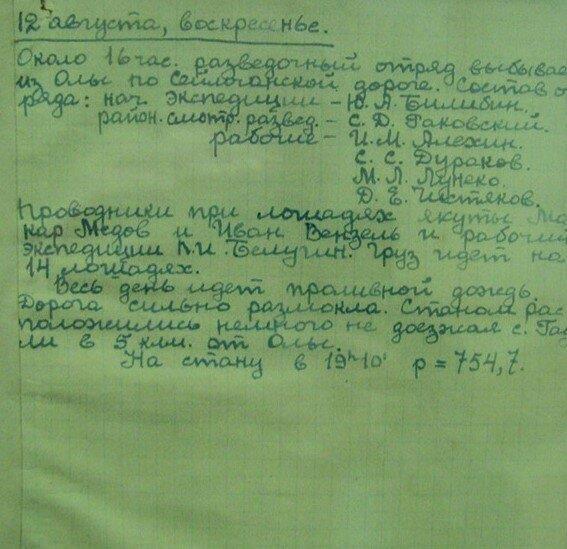 12 августа, воскресенье.
Около 16 час. разведочный отряд выбывае
из Олы по Сеймчанской дороге. Состав о
ряда: нач. экспедиции – Ю. А. Билибин.
район. смотр. развед. – С. Д. Раковский.
рабочие – И. М. Алехин.
С. С. Дураков.
М. Л. Лунеко.
Д. Е. Чистяков.
Проводники при лошадях якуты Ма
кар Медов и Иван Вензель и рабочий
экспедиции П. И. Белугин. Груз идет на
14 лошадях.
Весь день идет проливной дождь.
Дорога сильно размокла. Станом рас
положились немного не доезжая с. Гад
ли в 5 клм. от Олы.
На стану в 19ʰ10' p = 754,7.